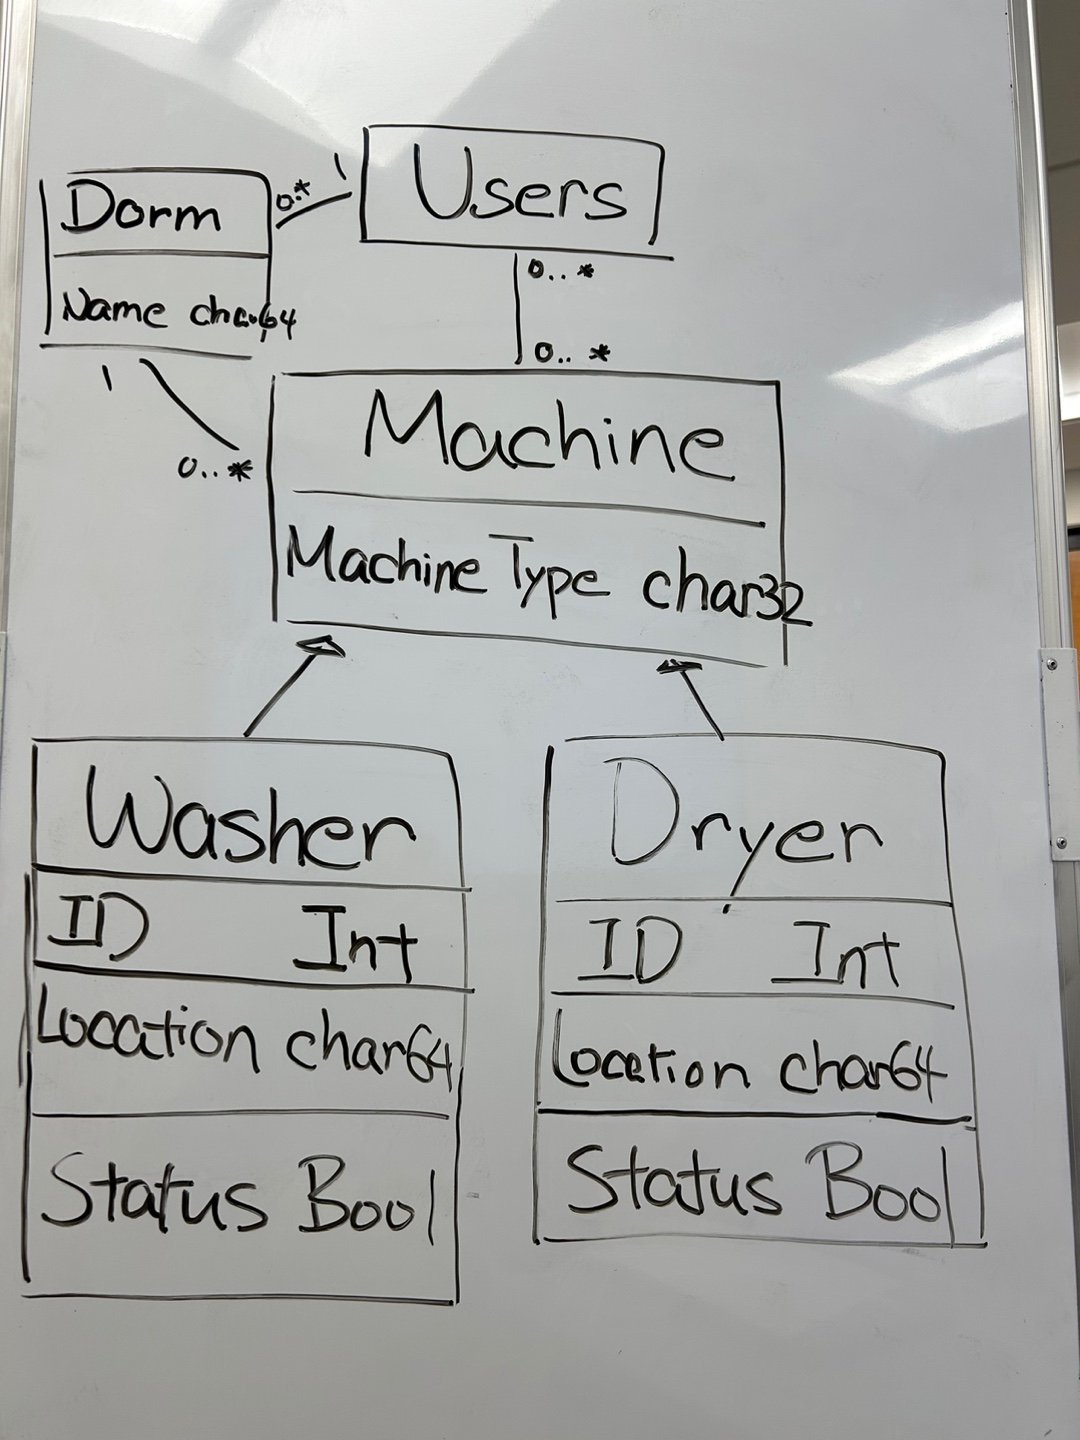 Users
1
0..*
Dorm
Name char64
0..*
0..*
1
0..*
Machine
Machine Type char32
Washer
ID Int
Location char64
Status Bool
Dryer
ID Int
Location char64
Status Bool